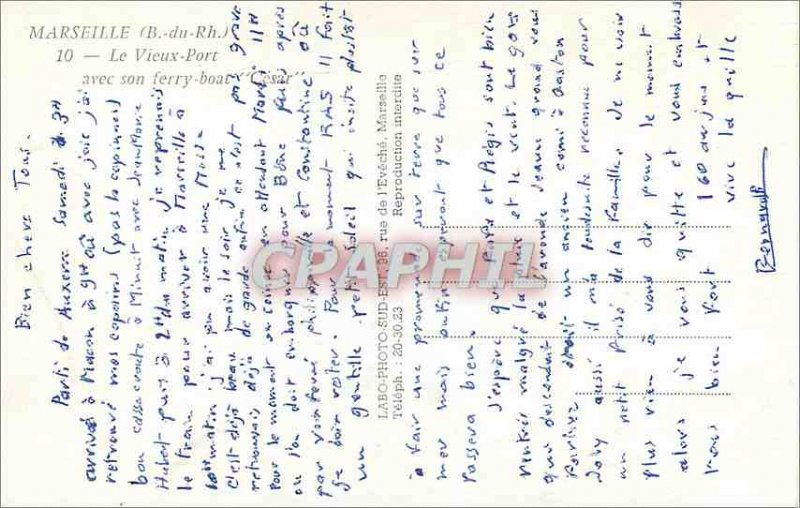 MARSEILLE (B.-du-Rh.)
10 — Le Vieux-Port
avec son ferry-boat "César"
LABO-PHOTO-SUD-EST, 96, rue de l'Evêché, Marseille
Téléph. : 20-30.23 Reproduction interdite
CPAPHIL
Bien chers Tous.
Parti de Auxerre Samedi à
arrivé à Macon à 9H où avec joie j'ai
retrouvé mes copains (pas les copines)
bon casse croute à Minuit avec Jean Marie
Hubert puis à 2H du matin je reprenais
le train pour arriver à Marseille à
j'ai pu avoir une Messe
C'est déjà beau, mais le soir je me
retrouvais déjà de garde enfin ce n'est pas grave
Pour le moment on coince en attendant Mardi 11H
où l'on doit embarquer pour Bône puis après
par voie ferré philippeville et Constantine où
je dois rester. Pour le moment RAS Il fait
un gentille petit soleil qui incite plutôt
à fair une promenade sur terre que sur
mer mais enfin espérant que tous ce
Passera bien.
J'espère que Papa et Régis sont bien
rentrés malgré la pluie et le vent. Le gars
qui descendait de grand
Parlier était un ancien comi à Gaston
Joly aussi il m'a toudsuite reconnue pour
un petit Prisé de la Famille. Je ne vois
Plus rien à vous dir pour le moment
alors je vous quitte et vous embrasse
tous bien fort 160 aujus et
vive la quille
Bernard